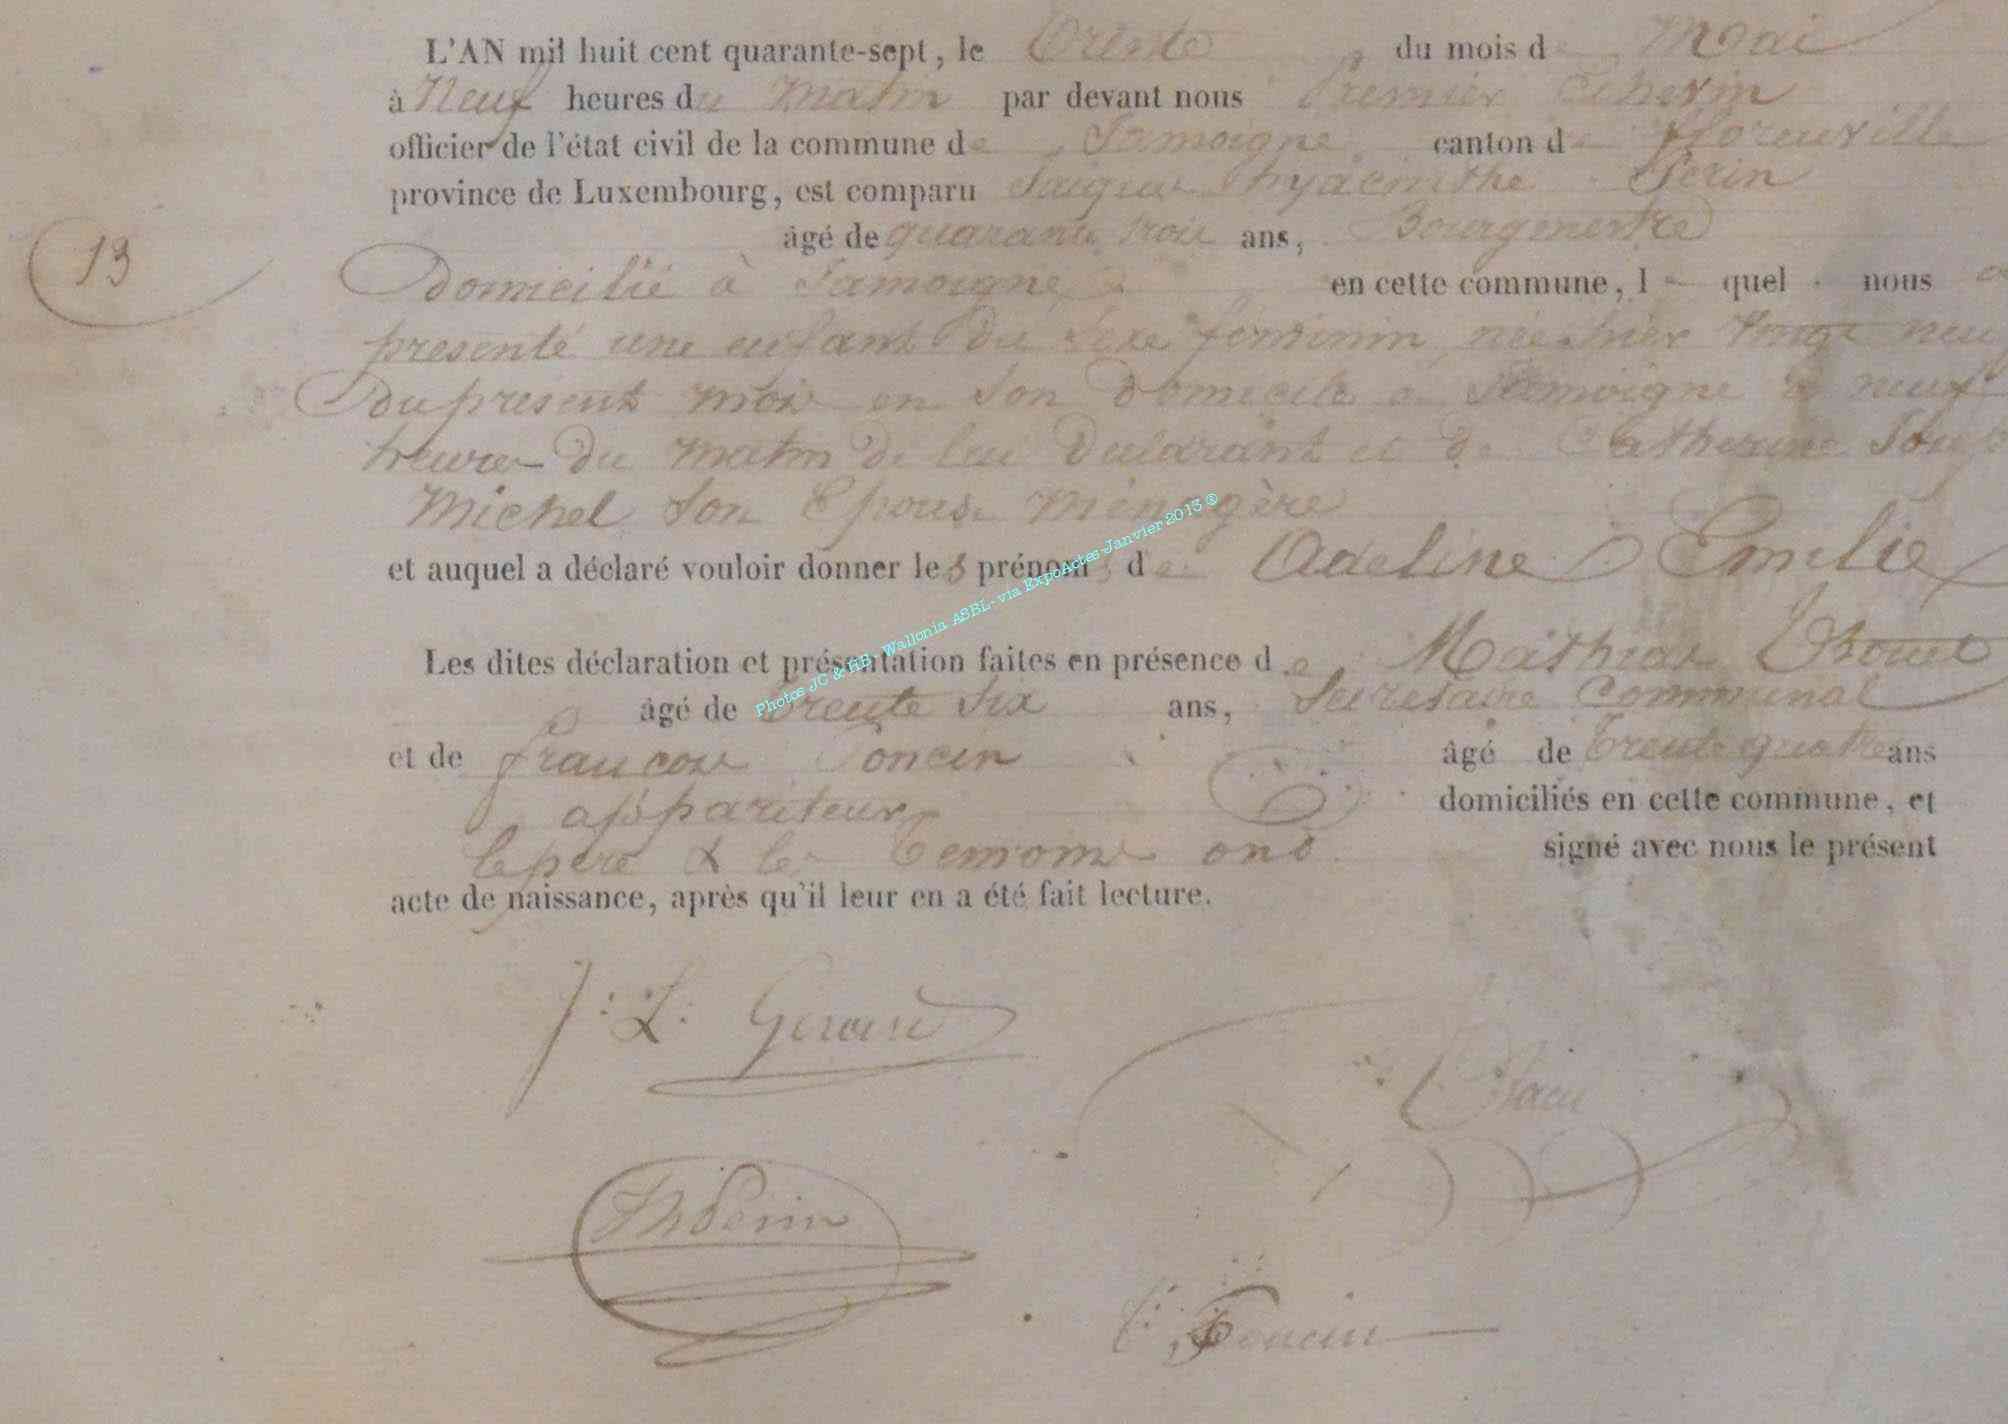 L'AN mil huit cent quarante-sept, le Trente du mois de Mai
à Neuf heures du matin par devant nous Premier Echevin
officier de l'état civil de la commune de Jamoigne canton de fflorenville
province de Luxembourg, est comparu hyacinthe Perin
âgé de quarante trois ans, Bourgmestre
13
Domicilié à Jamoigne en cette commune, l quel nous a
presenté une enfant du sexe féminin, née hier vingt neuf
du présent mois en son domicile a Jamoigne a neuf
heures du matin de lui déclarant et de Catherine
Michel son Epouse ménagère
et auquel a déclaré vouloir donner les prénoms de Adeline Emilie
Les dites déclaration et présentation faites en présence de Mathias
âgé de trente six ans, Secretaire Communal
et de françois Poncin âgé de Trente quatre ans
appariteur domiciliés en cette commune, et
le père & les Temoins ont signé avec nous le présent
acte de naissance, après qu'il leur en a été fait lecture.
Photos JC & HB - Wallonia ASBL- via ExpoActes Janvier 2013 ®
J: L: Gerard
Perin
Poncin